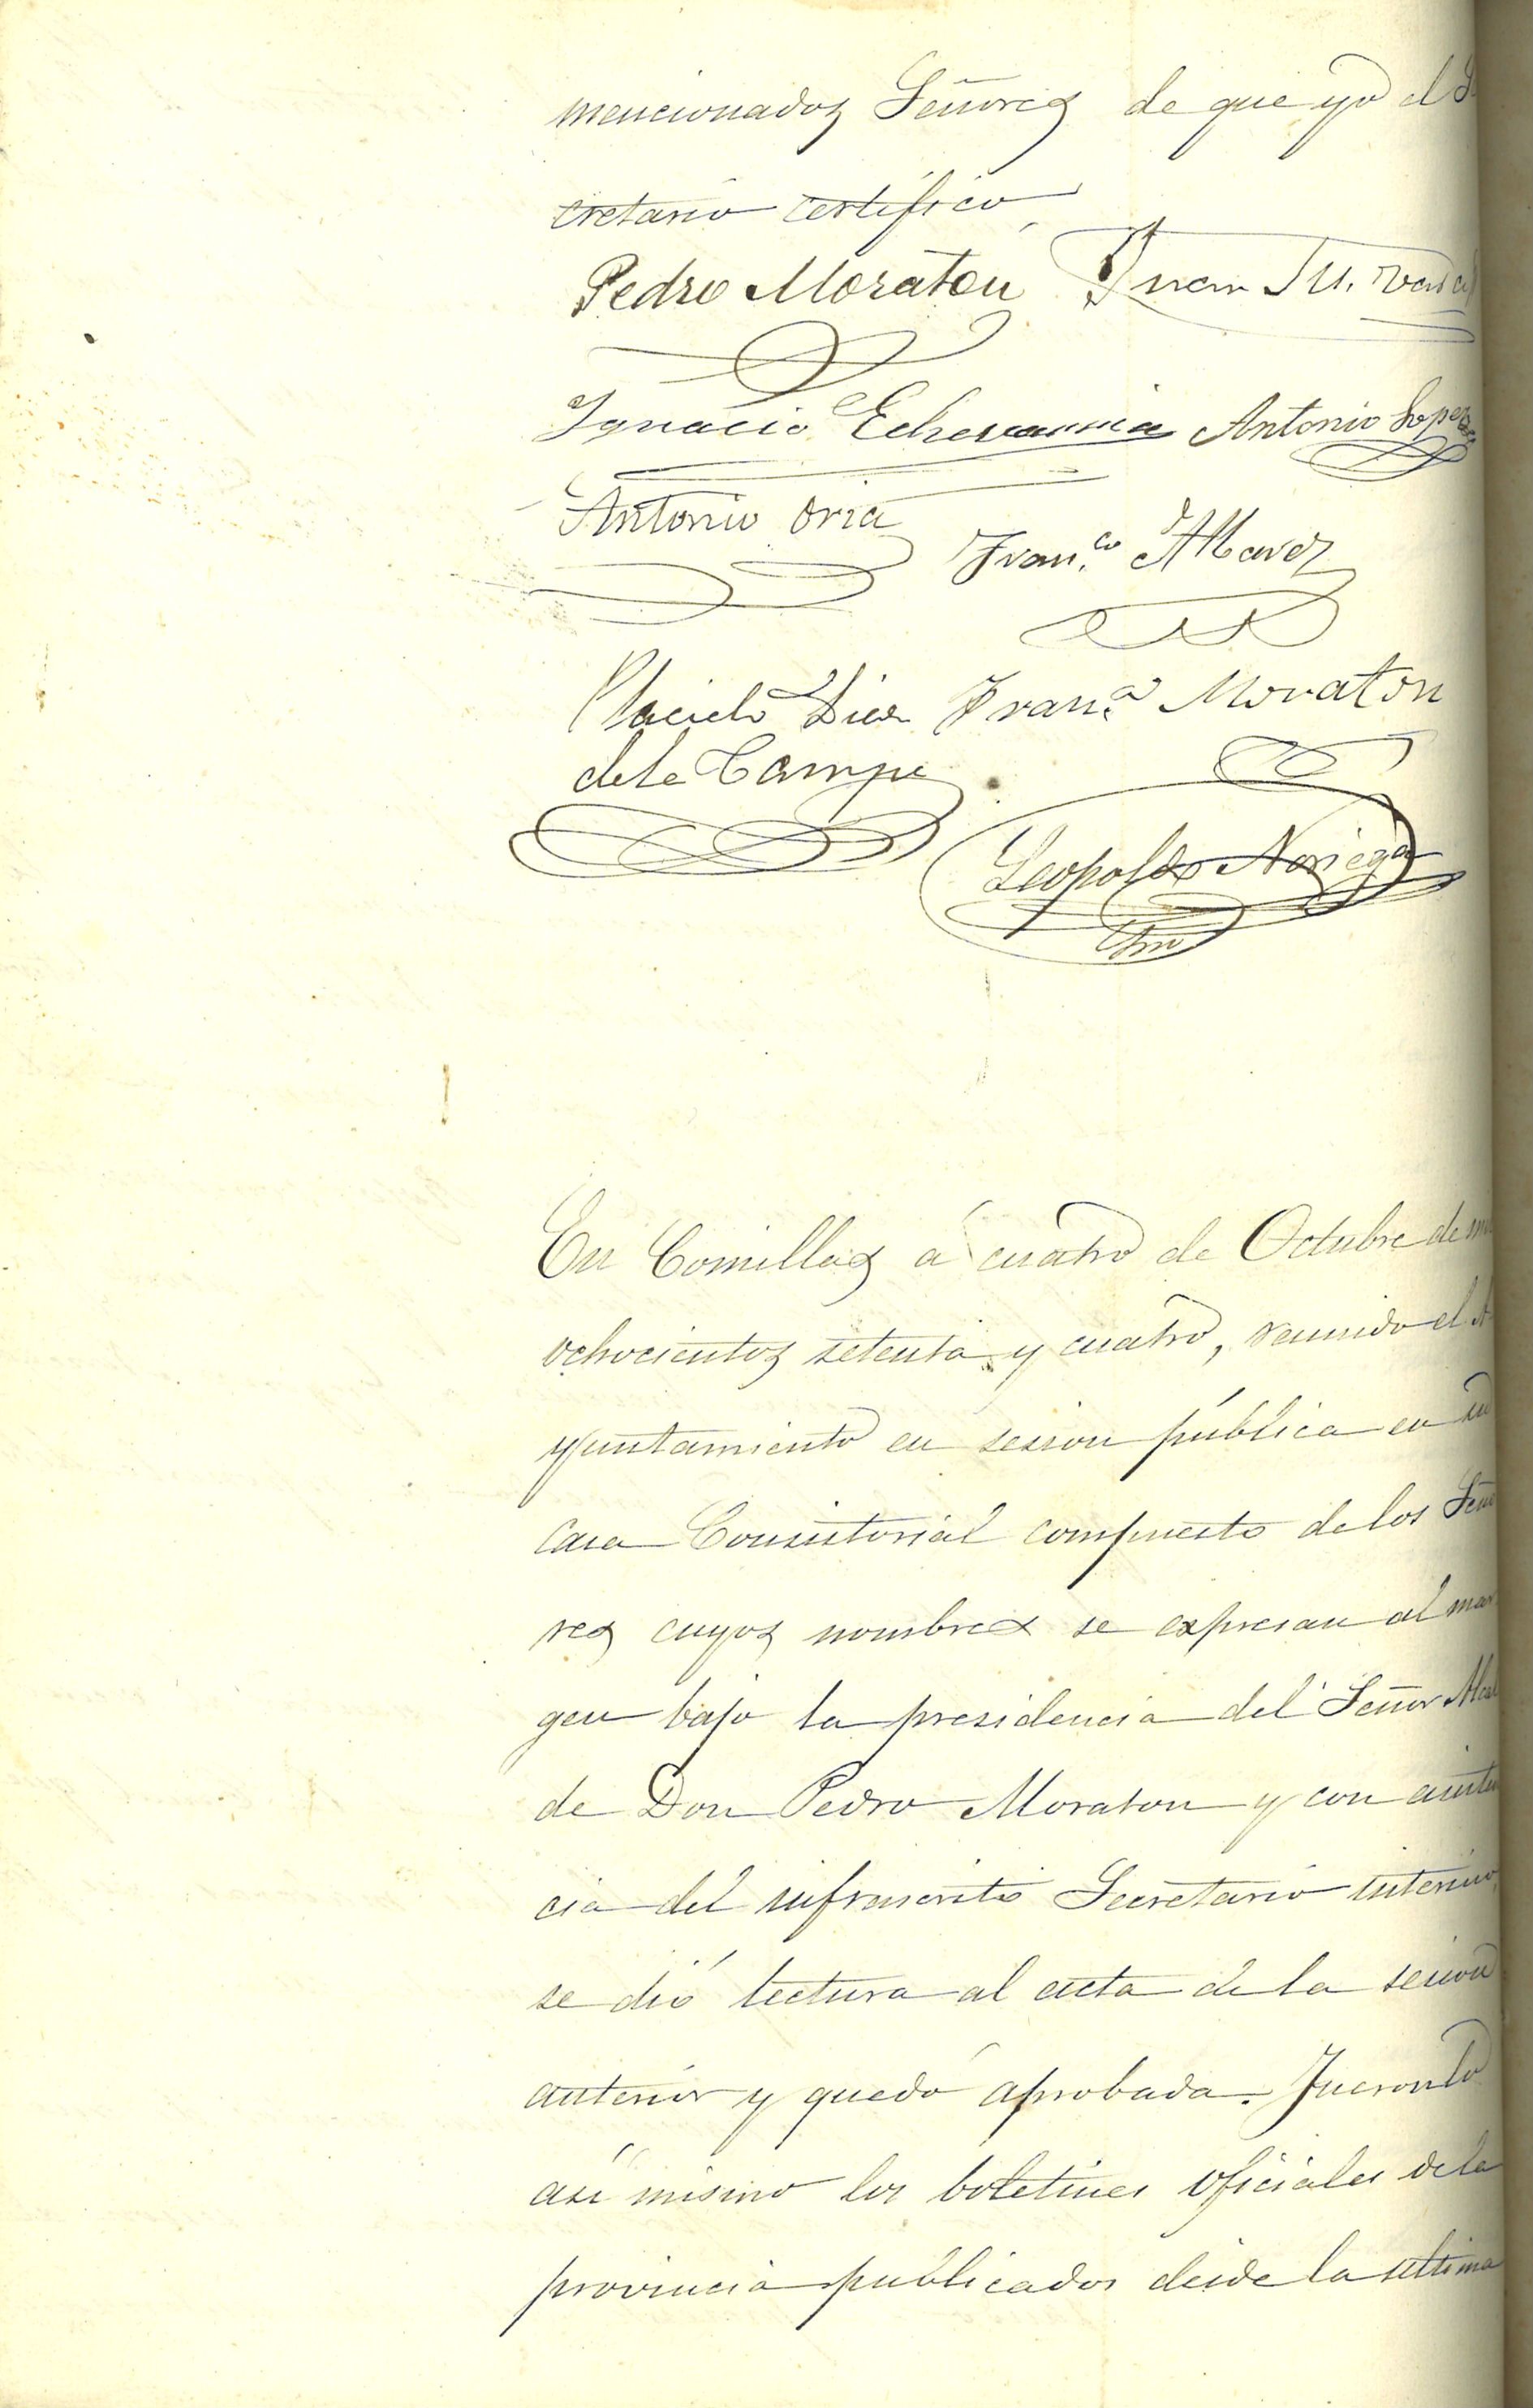 mencionados Señores de que yo el S
cretario certifico
Pedro Moraton Juan M.
Ignacio Echevarria Antonio Lopez
Antonio Oria
Fran.co
Placido Diez Fran.co Moraton
dela Campa
Leopoldo Noriega
En Comillas á cuatro de Octubre de m
ochocientos setenta y cuatro, reunido el A
yuntamiento en sesion pública en su
casa Consistorial compuesto de los Seño
res cuyos nombres se expresan al mar
gen bajo la presidencia del Señor Alcal
de Don Pedro Moraton y con asisten
cia del infrascrito Secretario interino,
se dió lectura al acta de la sesion
anterior y quedó aprobada. Fueronlo
asi mismo los boletines oficiales dela
provincia publicados desde la ultima